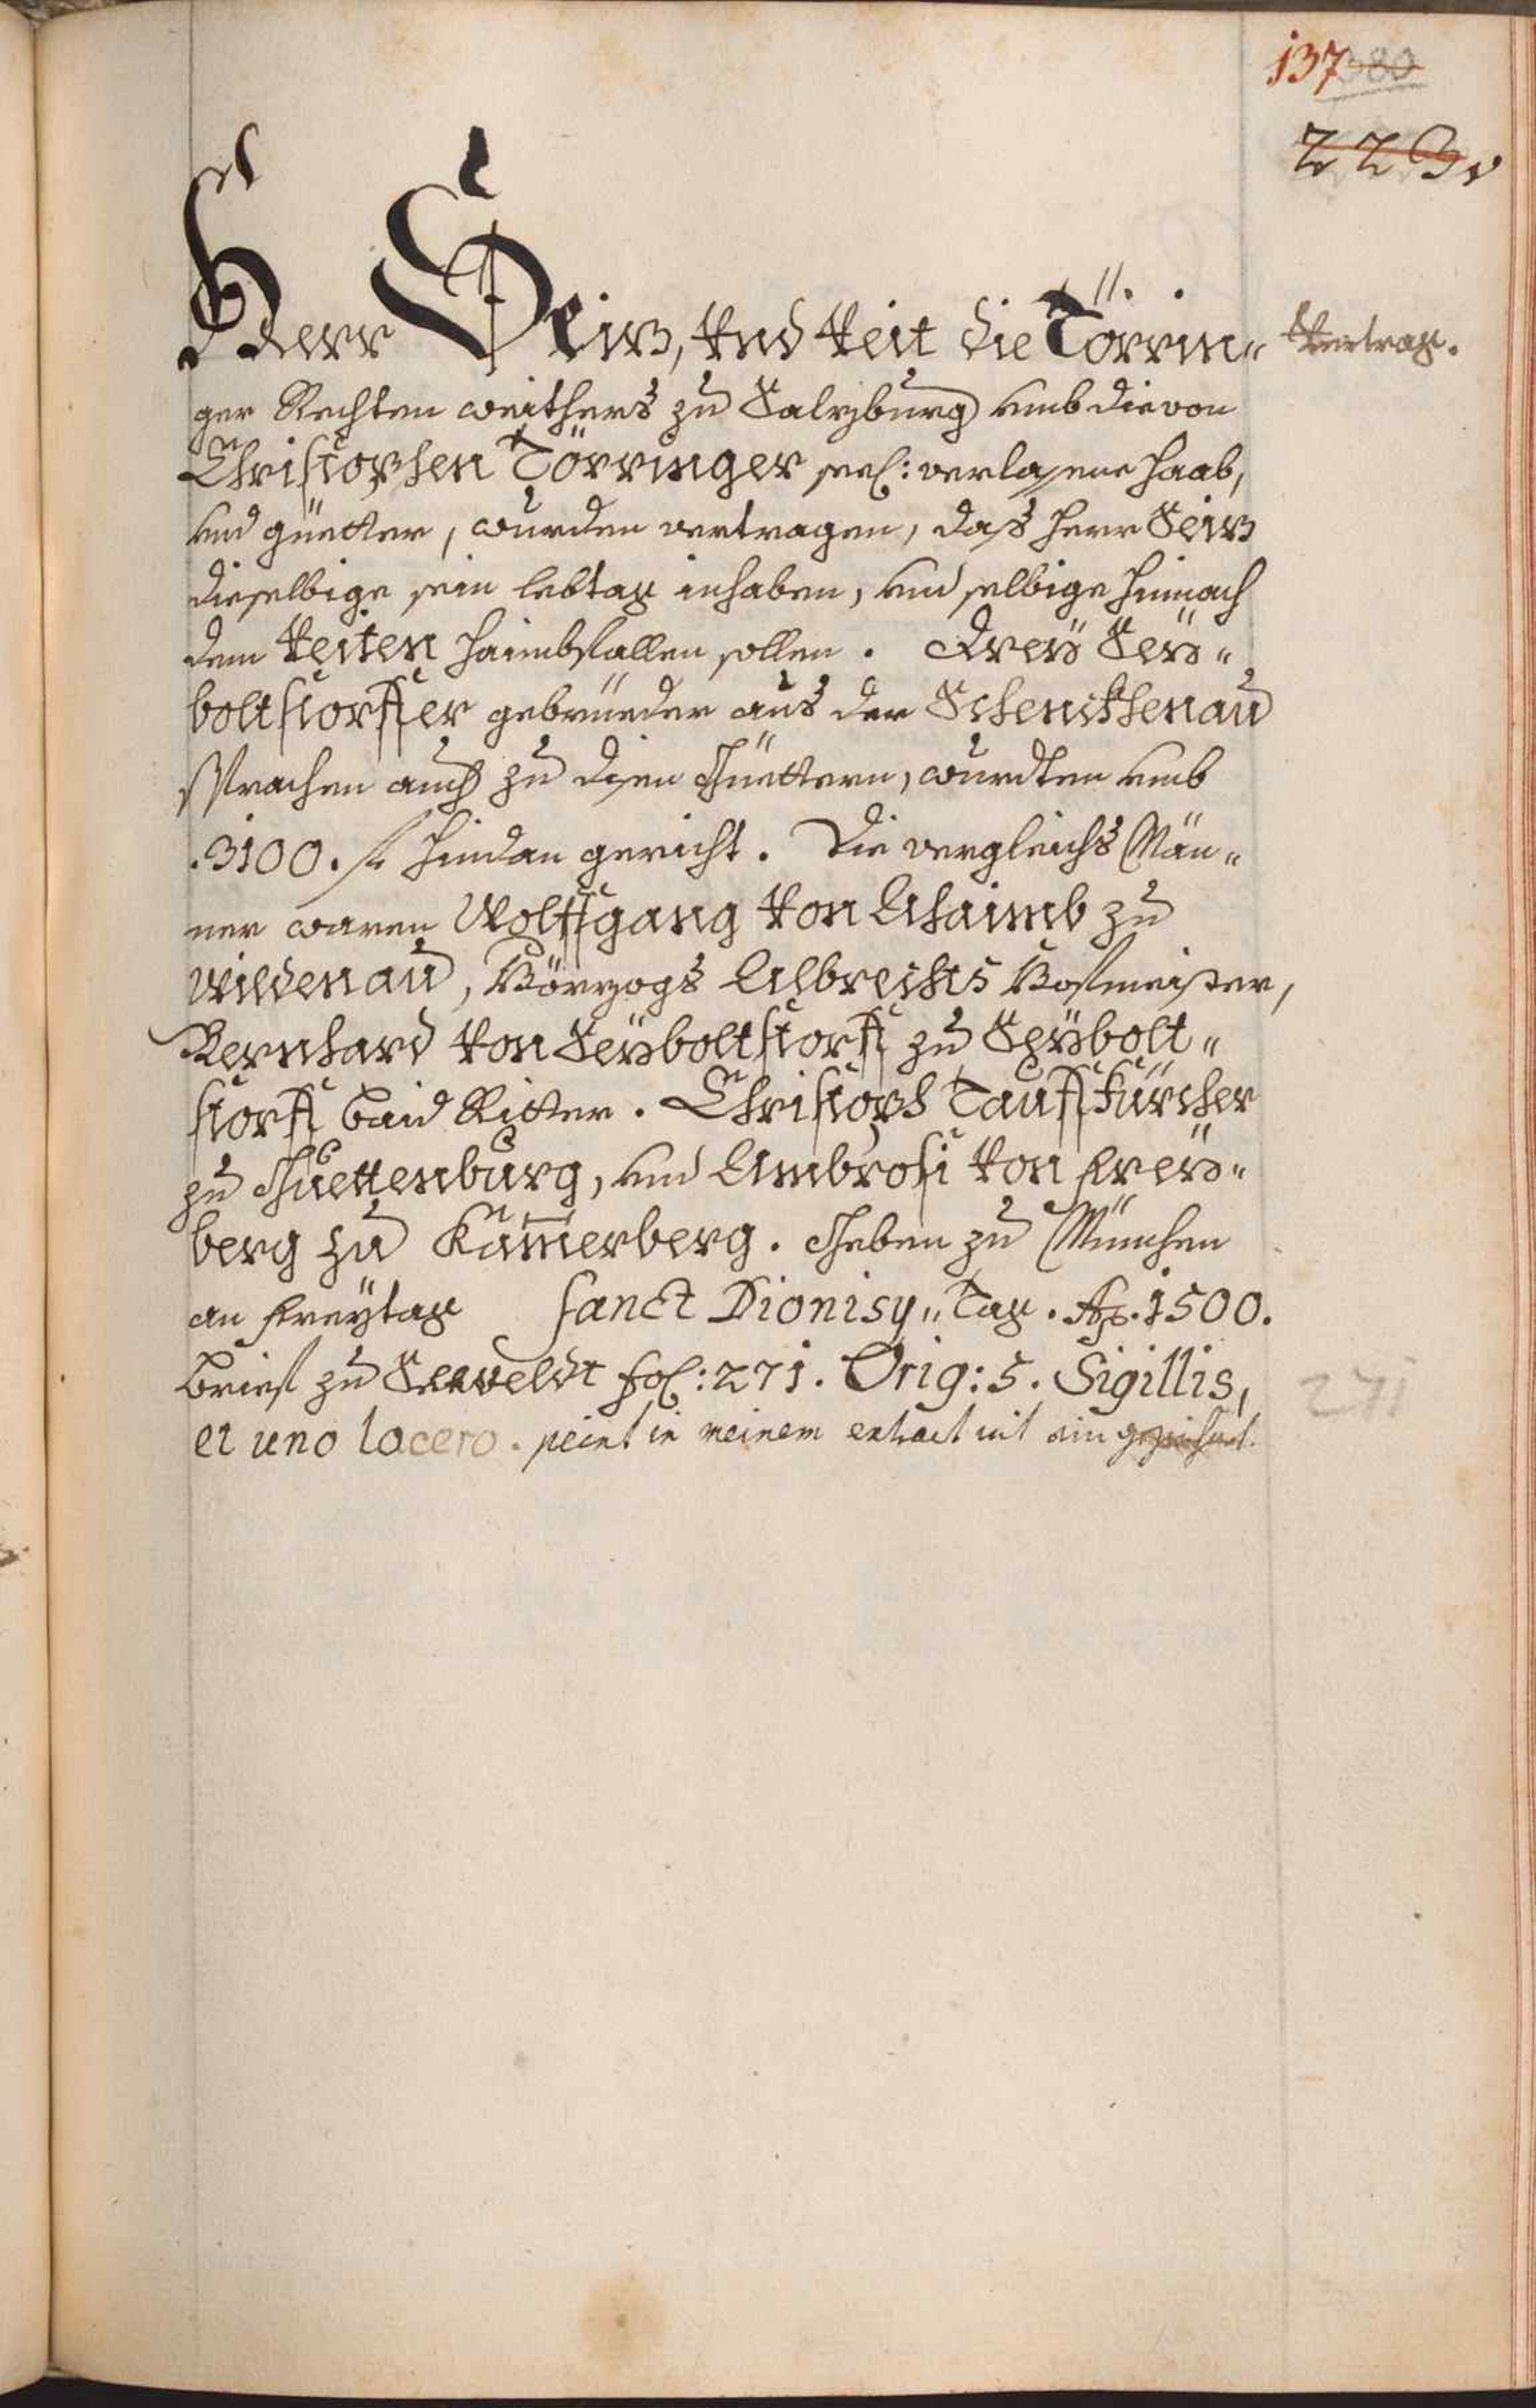 137 380
223
Herr Seiz, Vnd Veit die Törrin„
Vertrag.
ger Rechten weithers zu Salzburg umb die von
Christophen Törringer seel: verlassene Haab,
und güetter, wurden vertragen, daß Herr Seiz
dieselbige sein lebtag inhaben, und selbige hinnach
dem Veiten haimbfallen sollen. Drey Sey„
boltstorffer gebrüeder aus der Schenckhenau
sprachen auch zu disen Güettern, wurdten umb
.3100. fl hindan gericht. Die vergleichs Män„
ner waren Wolffgang Von Ahaimb zu
Wildenau, Hörzogs Albrechts Hofmeister,
Bernhard Von Seyboltstorff zu Seybolt„
storff baid Ritter. Christoph Tauffkürcher
zu Guettenburg, und Ambrosi Von Frey„
berg zu Kam̄erberg. Geben zu München
an Freytag Sanct Dionisy„ Tag. Ao. 1500.
Brief zu Seeveldt fol: 271. Orig: 5. Sigillis,
271
et uno lacero. in meinem extract nit ein